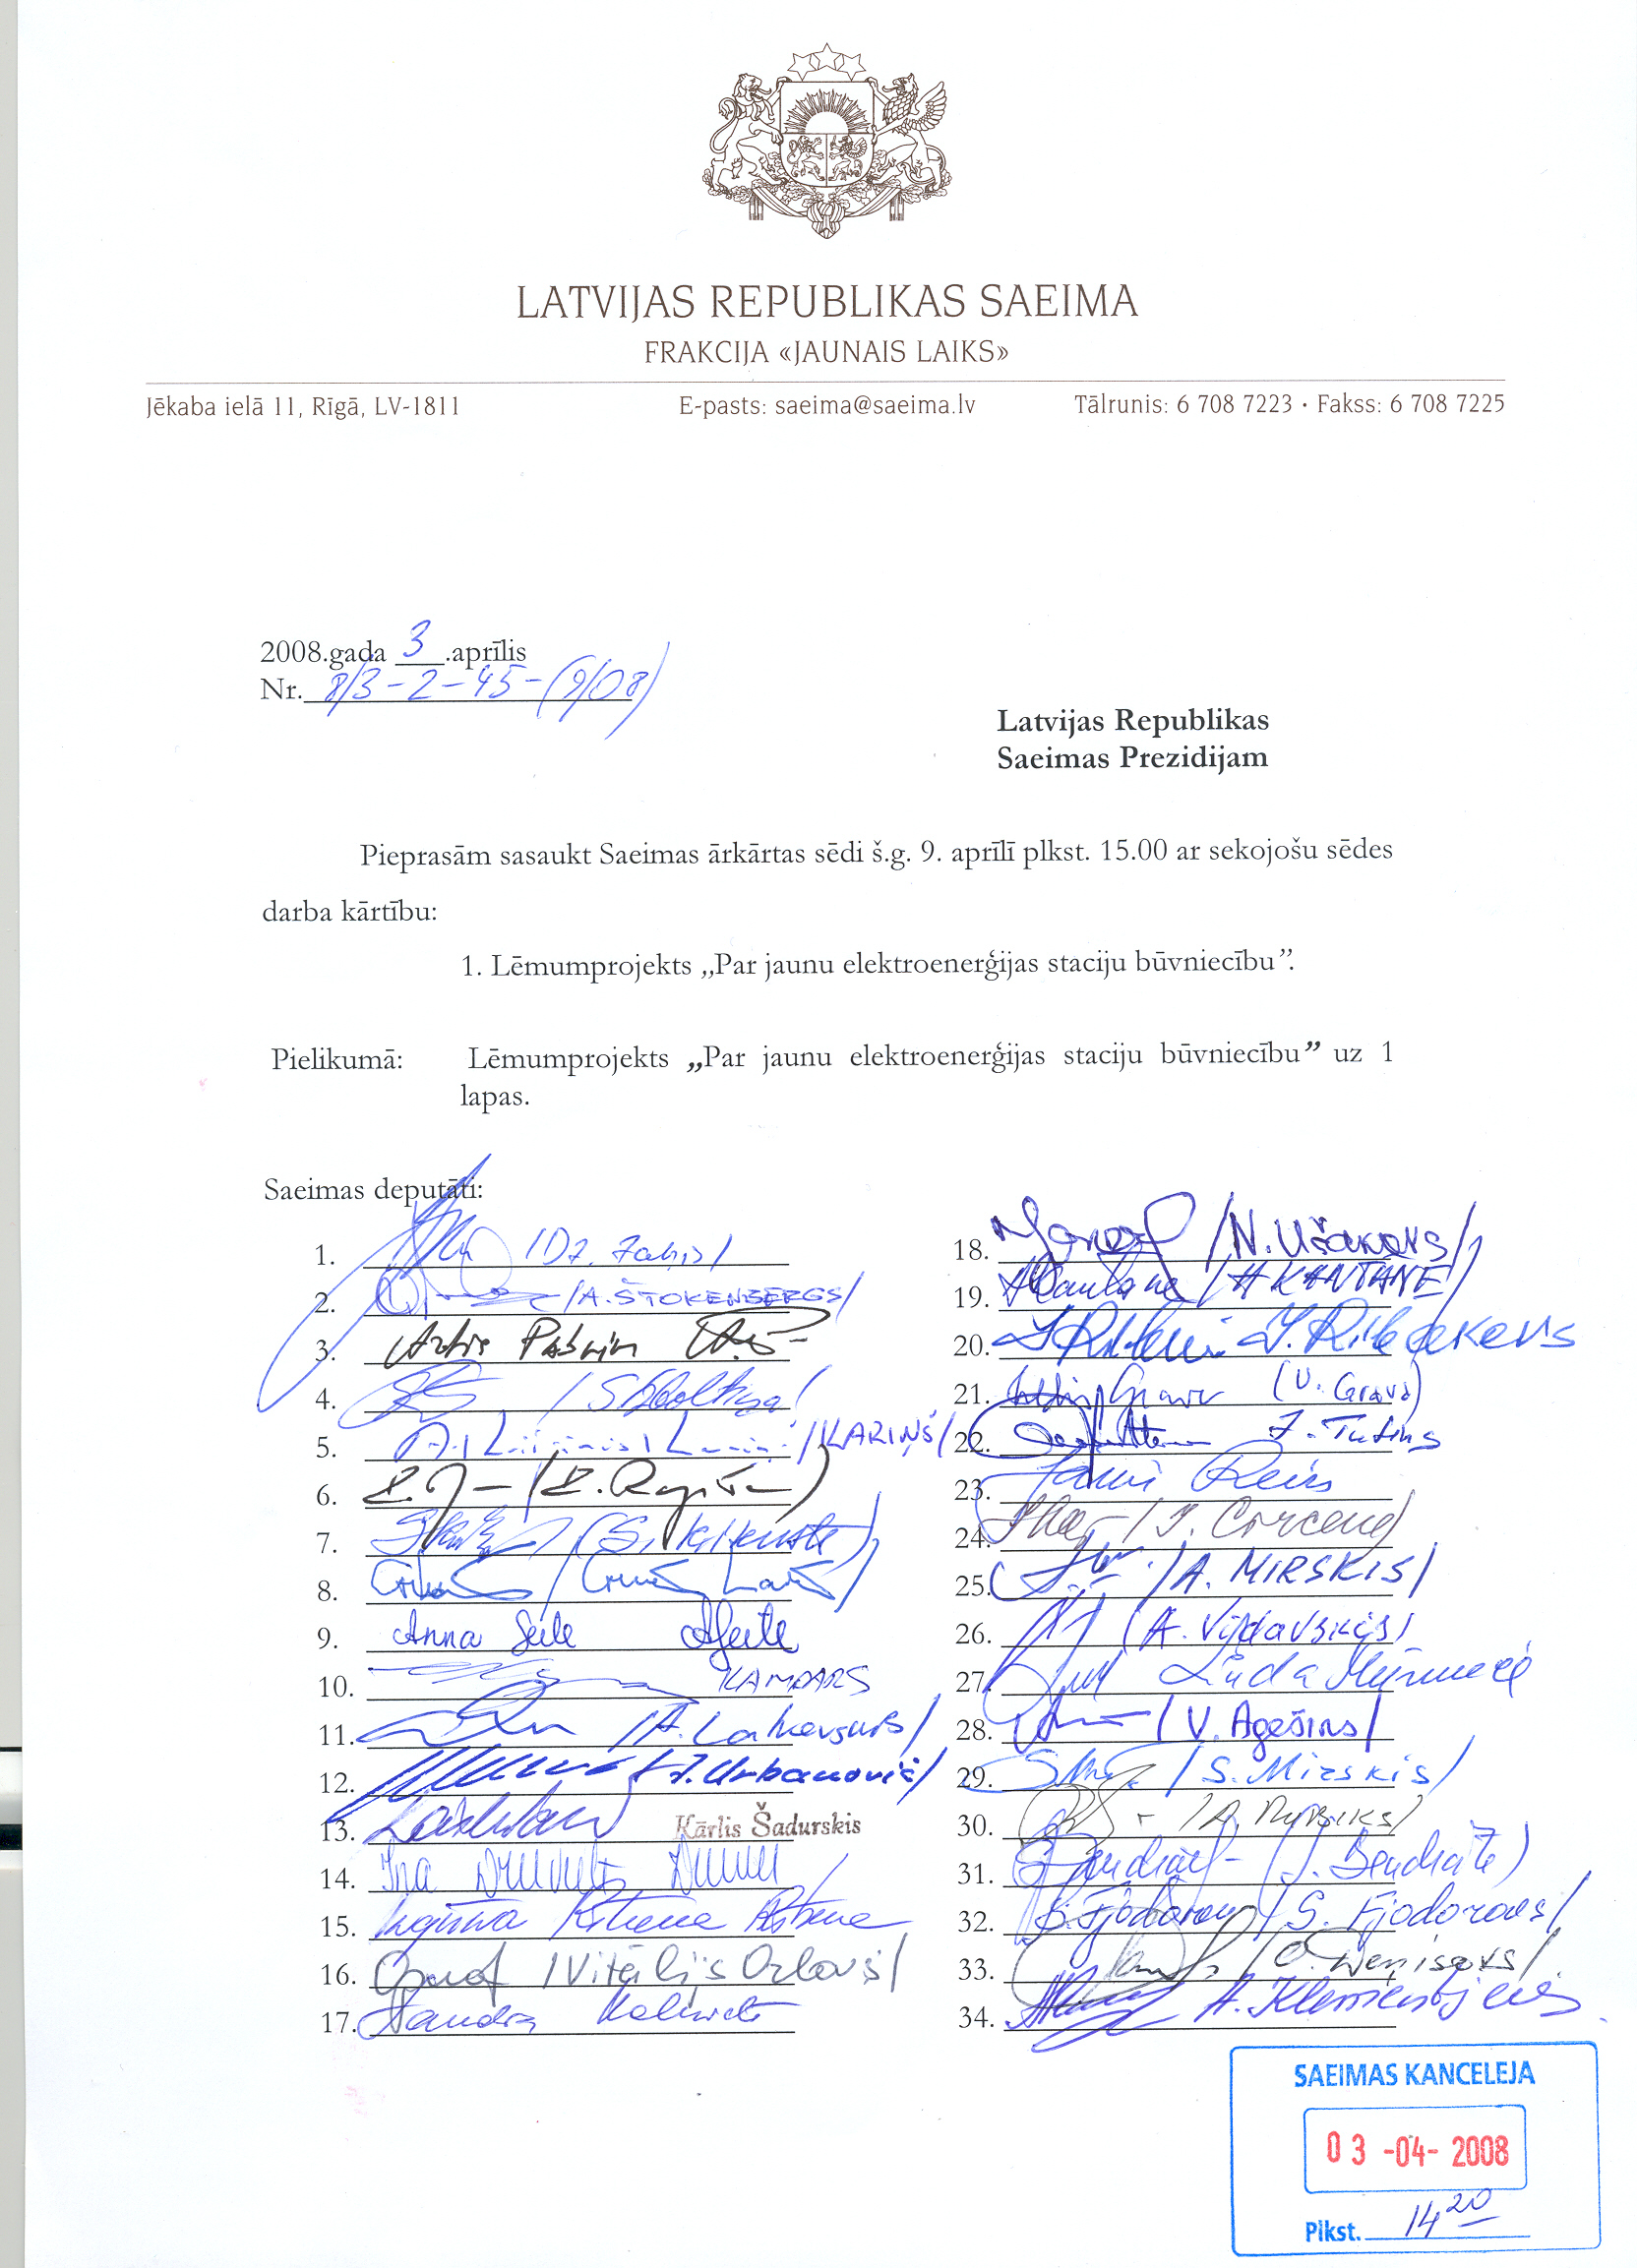 LATVIJAS REPUBLIKAS SAEIMA
FRAKCIJA «JAUNAIS LAIKS»
Jēkaba ielā 11, Rīgā, LV-1811 E-pasts: saeima@saeima.lv Tālrunis: 6 708 7223 • Fakss: 6 708 7225
2008.gada 3.aprīlis
Nr. 8/3-2-45-(9/08)
Latvijas Republikas
Saeimas Prezidijam
Pieprasām sasaukt Saeimas ārkārtas sēdi š.g. 9. aprīlī plkst. 15.00 ar sekojošu sēdes
darba kārtību:
1. Lēmumprojekts „Par jaunu elektroenerģijas staciju būvniecību”.
Pielikumā: Lēmumprojekts „Par jaunu elektroenerģijas staciju būvniecību” uz 1
lapas.
Saeimas deputāti:
1. /Dz. Zaķis/
2. /A. ŠTOKENBERGS/
3. Artis Pabriks
4.
5. /KARIŅŠ/
6.
7.
8.
9. Anna Seile ASeile
10. KAMPARS
11.
12. /J. Urbanovičs/
13. Kārlis Šadurskis
14. Ina Druviete
15.
16. /Vitālijs Orlovs/
17. Sandra Kalniete
18. /N. Ušakovs/
19. /A KANTĀNE/
20. J. Ribakovs
21. (U. Grava)
22. J. Tutins
23. Jānis Reirs
24.
25. /A. MIRSKIS/
26. (A. Vidavskis)
27.
28. /V. Agešins/
29. /S. Mirskis/
30. /A Rubiks/
31.
32. /S. Fjodorovs/
33. /O. Deņisovs/
34. A. Klementjevs
SAEIMAS KANCELEJA
03 -04- 2008
Plkst. 14 20